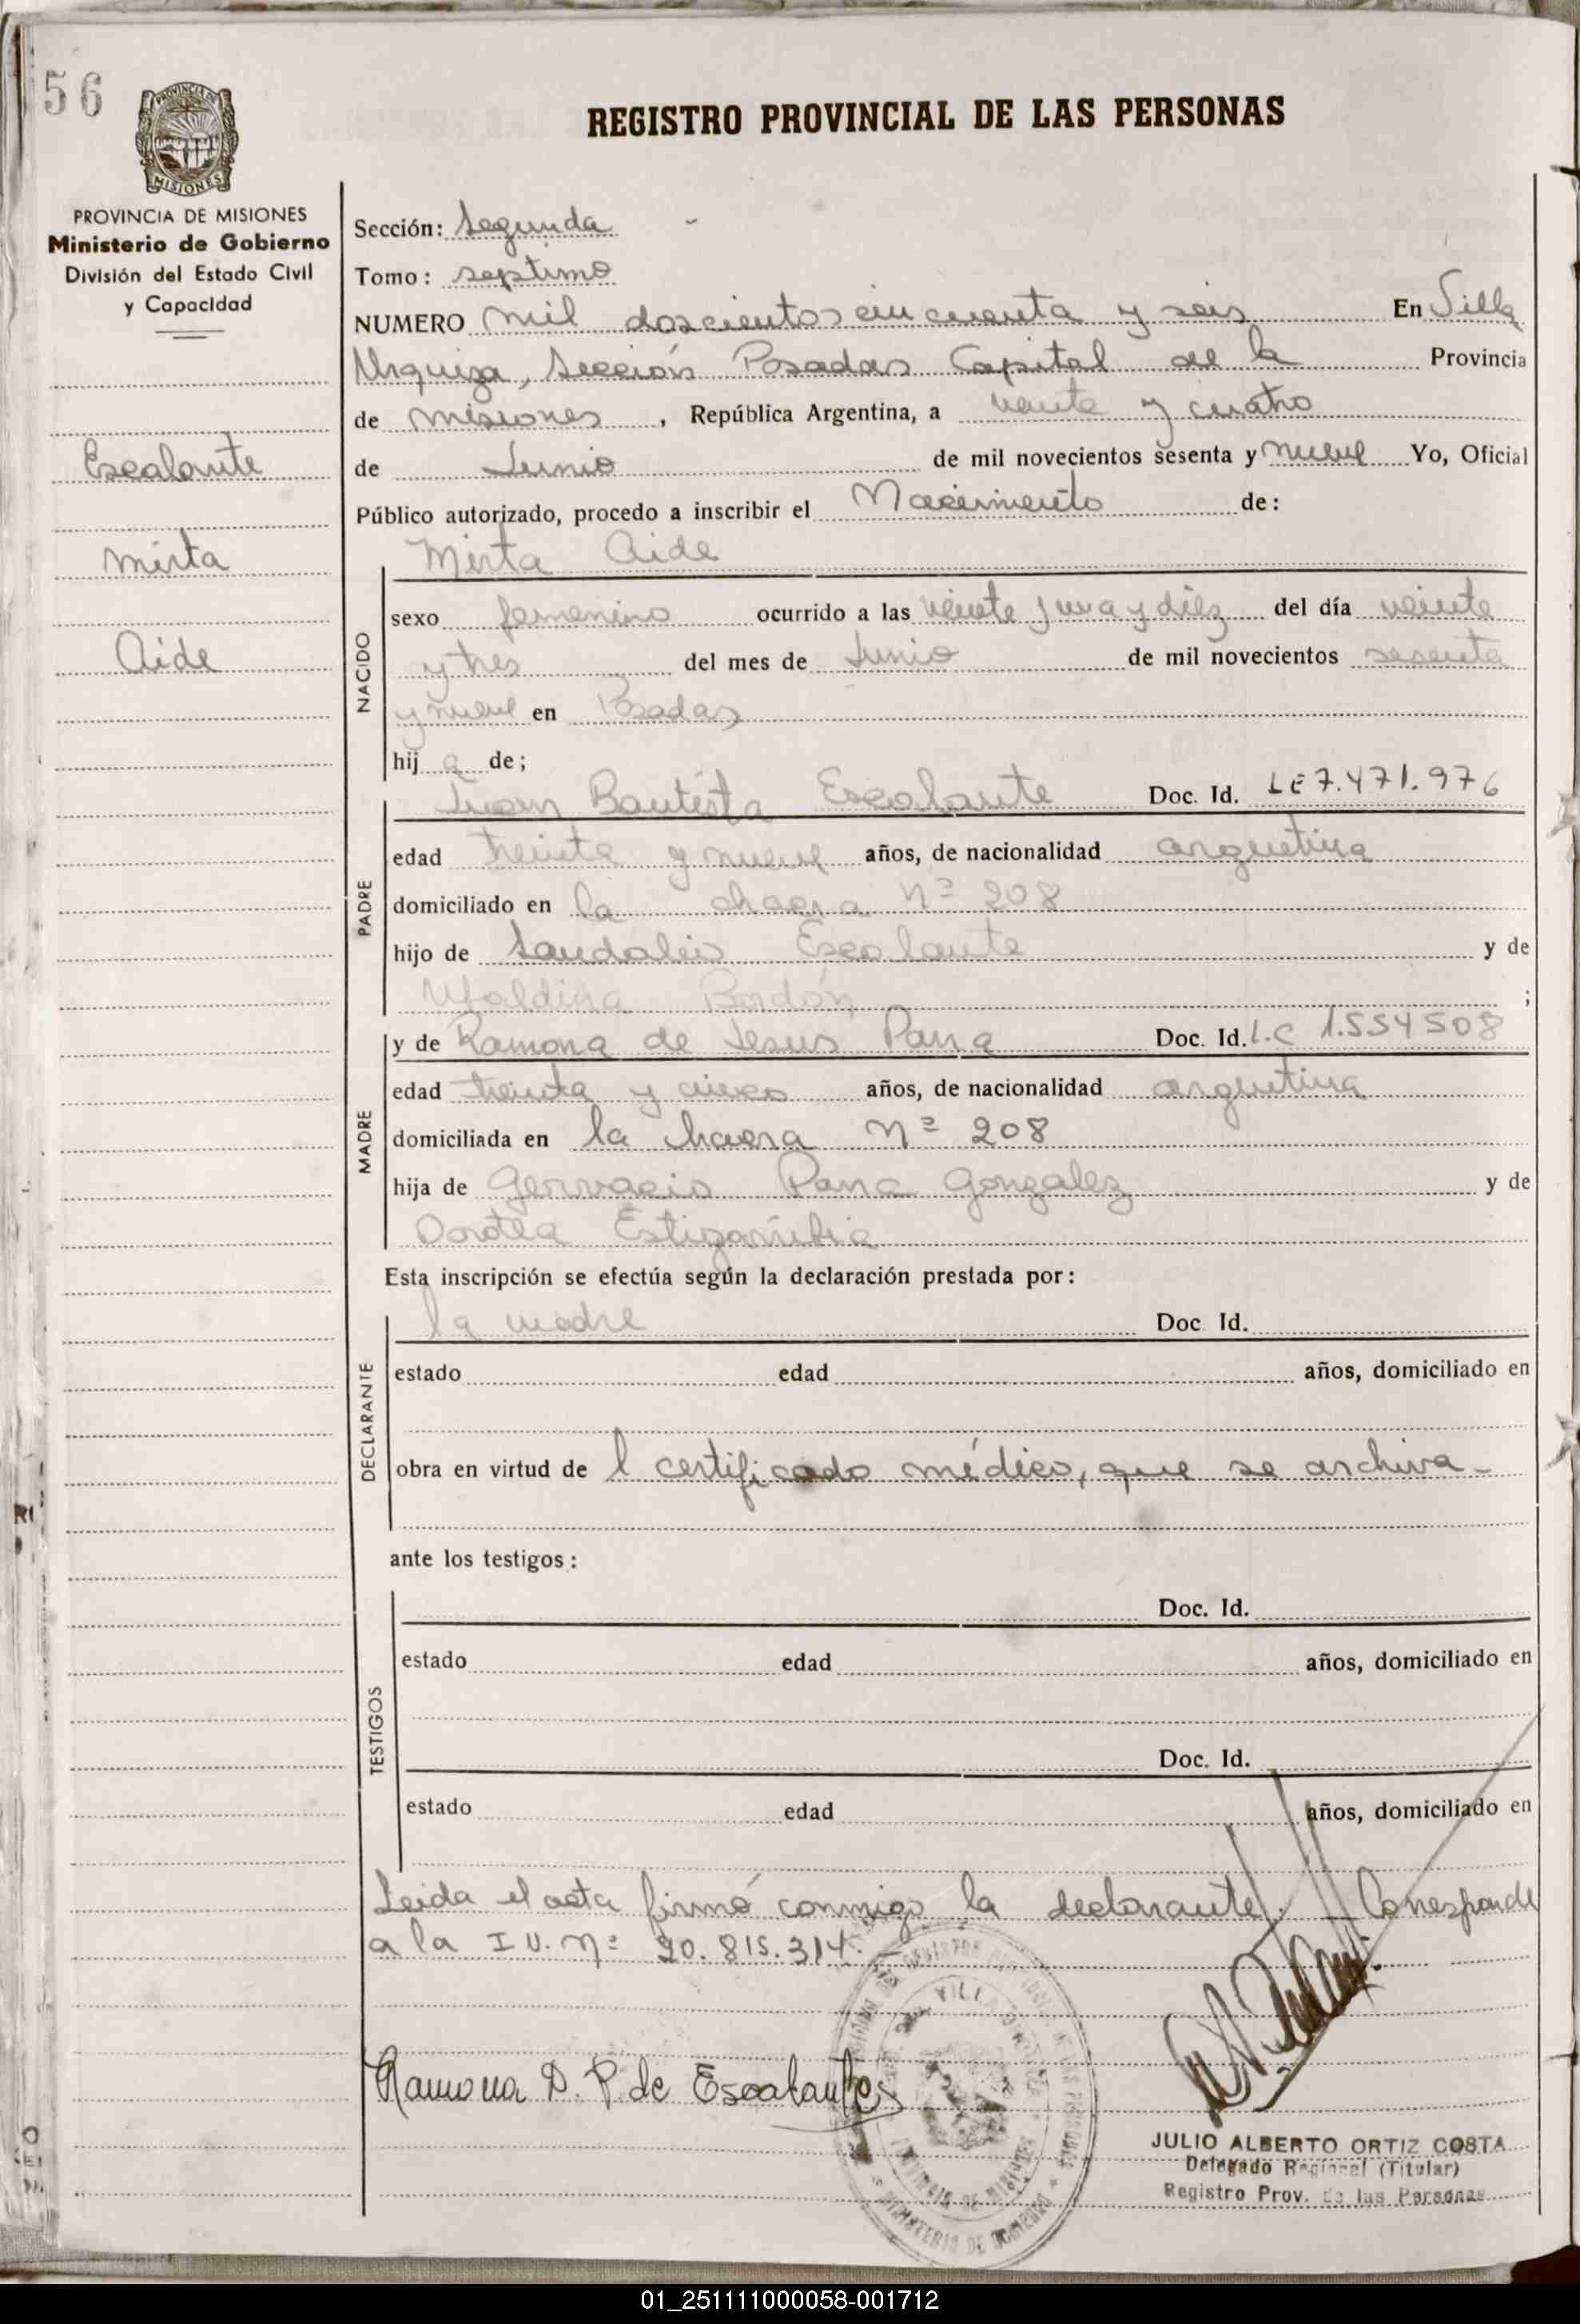 56
PROVINCIA DE
MISIONES
REGISTRO PROVINCIAL DE LAS PERSONAS
PROVINCIA DE MISIONES
Ministerio de Gobierno
División del Estado Civil
y Capacidad
Escalante
Mirta
Aide
Sección: Segunda
Tomo: septimo
NUMERO mil doscientos cincuenta y seis En Villa
Urquiza, Sección Posadas Capital de la Provincia
de Misiones, República Argentina, a veinte y cuatro
de Junio de mil novecientos sesenta y nueve Yo, Oficial
Público autorizado, procedo a inscribir el Nacimiento de:
Mirta Aide
NACIDO
sexo femenino ocurrido a las veinte y una y diez del día veinte
y tres del mes de Junio de mil novecientos sesenta
y nueve en Posadas
hij a de;
Juan Bautista Escalante Doc. Id. LE 7.471.976
PADRE
edad treinta y nueve años, de nacionalidad argentina
domiciliado en la chacra Nº 208
hijo de Sandalio Escalante y de
Ubaldina Bordón ;
y de Ramona de Jesus Pana Doc. Id. L.C 1.554508
MADRE
edad treinta y cinco años, de nacionalidad argentina
domiciliada en la chacra Nº 208
hija de Gervacio Pana Gonzalez y de
Dorotea Estigarribia
Esta inscripción se efectúa según la declaración prestada por:
la madre Doc Id.
DECLARANTE
estado edad años, domiciliado en
obra en virtud de l certificado médico, que se archiva -
ante los testigos:
Doc. Id.
TESTIGOS
estado edad años, domiciliado en
Doc. Id.
estado edad años, domiciliado en
Leida el acta firmó conmigo la declarante. Corresponde
a la I U. Nº 20.815.314.-
Ramona D. P. de Escalante
JULIO ALBERTO ORTIZ COSTA
Delegado Regional (Titular)
Registro Prov. de las Personas
01_251111000058-001712